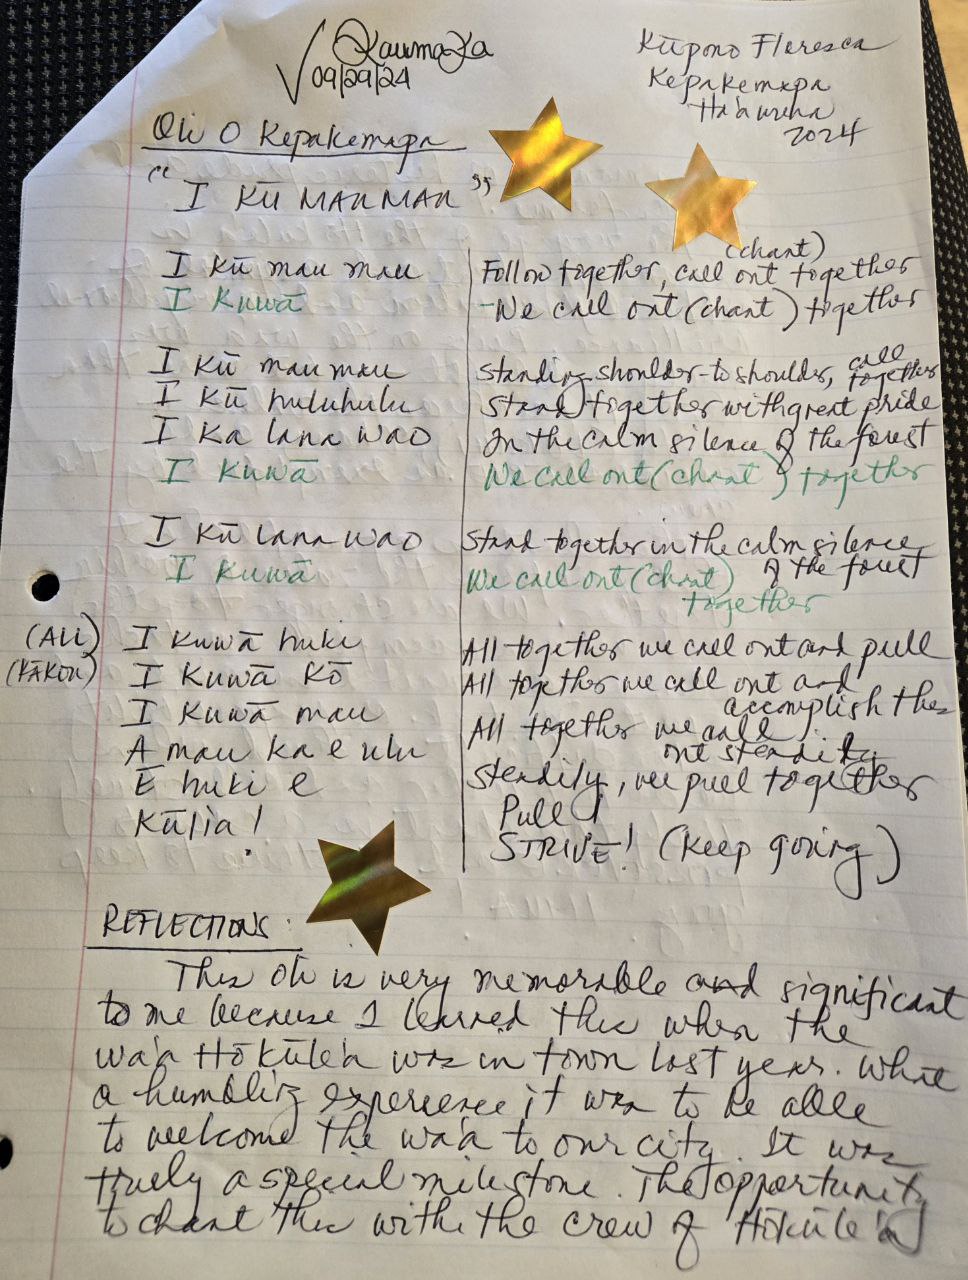 √ Kaumaka
09/29/24
Kūpono Floresca
Kepakemapa
Ha'awina
2024
Oli O Kepakemapa
"I KŪ MAU MAU"
I Kū mau mau
I Kuwā
(chant)
Follow together, call out together
-We call out (chant) together
I Kū mau mau
I Kū huluhulu
I Ka lana wao
I Kuwā
Standing shoulder-to shoulder, call together
Stand together with great pride
In the calm silence of the forest
We call out (chant) together
I Kū lana wao
I Kuwā
Stand together in the calm silence
of the forest
We call out (chant)
together
(ALL) I Kuwā huki
(KĀKOU) I Kuwā Kō
I Kuwā mau
A mau ka e ulu
E huki e
Kūlia!
All together we call out and pull
All together we call out and
accomplish this
All together we call
out steadily
Steadily, we pull together
Pull!
STRIVE! (Keep going)
REFLECTIONS:
This oli is very memorable and significant
to me because I learned this when the
wa'a Hōkūle'a was in town last year. What
a humbling experience it was to be able
to welcome the wa'a to our city. It was
truely a special milestone. The opportunity
to chant this with the crew of Hōkūle'a